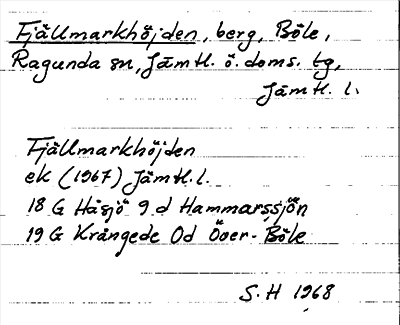 Fjällmarkhöjden, berg, Böle,
Ragunda sn, Jämtl. ö. doms. tg,
Jämtl. l.
Fjällmarkhöjden
ek (1967) Jämtl. l.
18 G Håsjö 9 d Hammarssjön
19 G Krångede 0d Över-Böle
S. H 1968